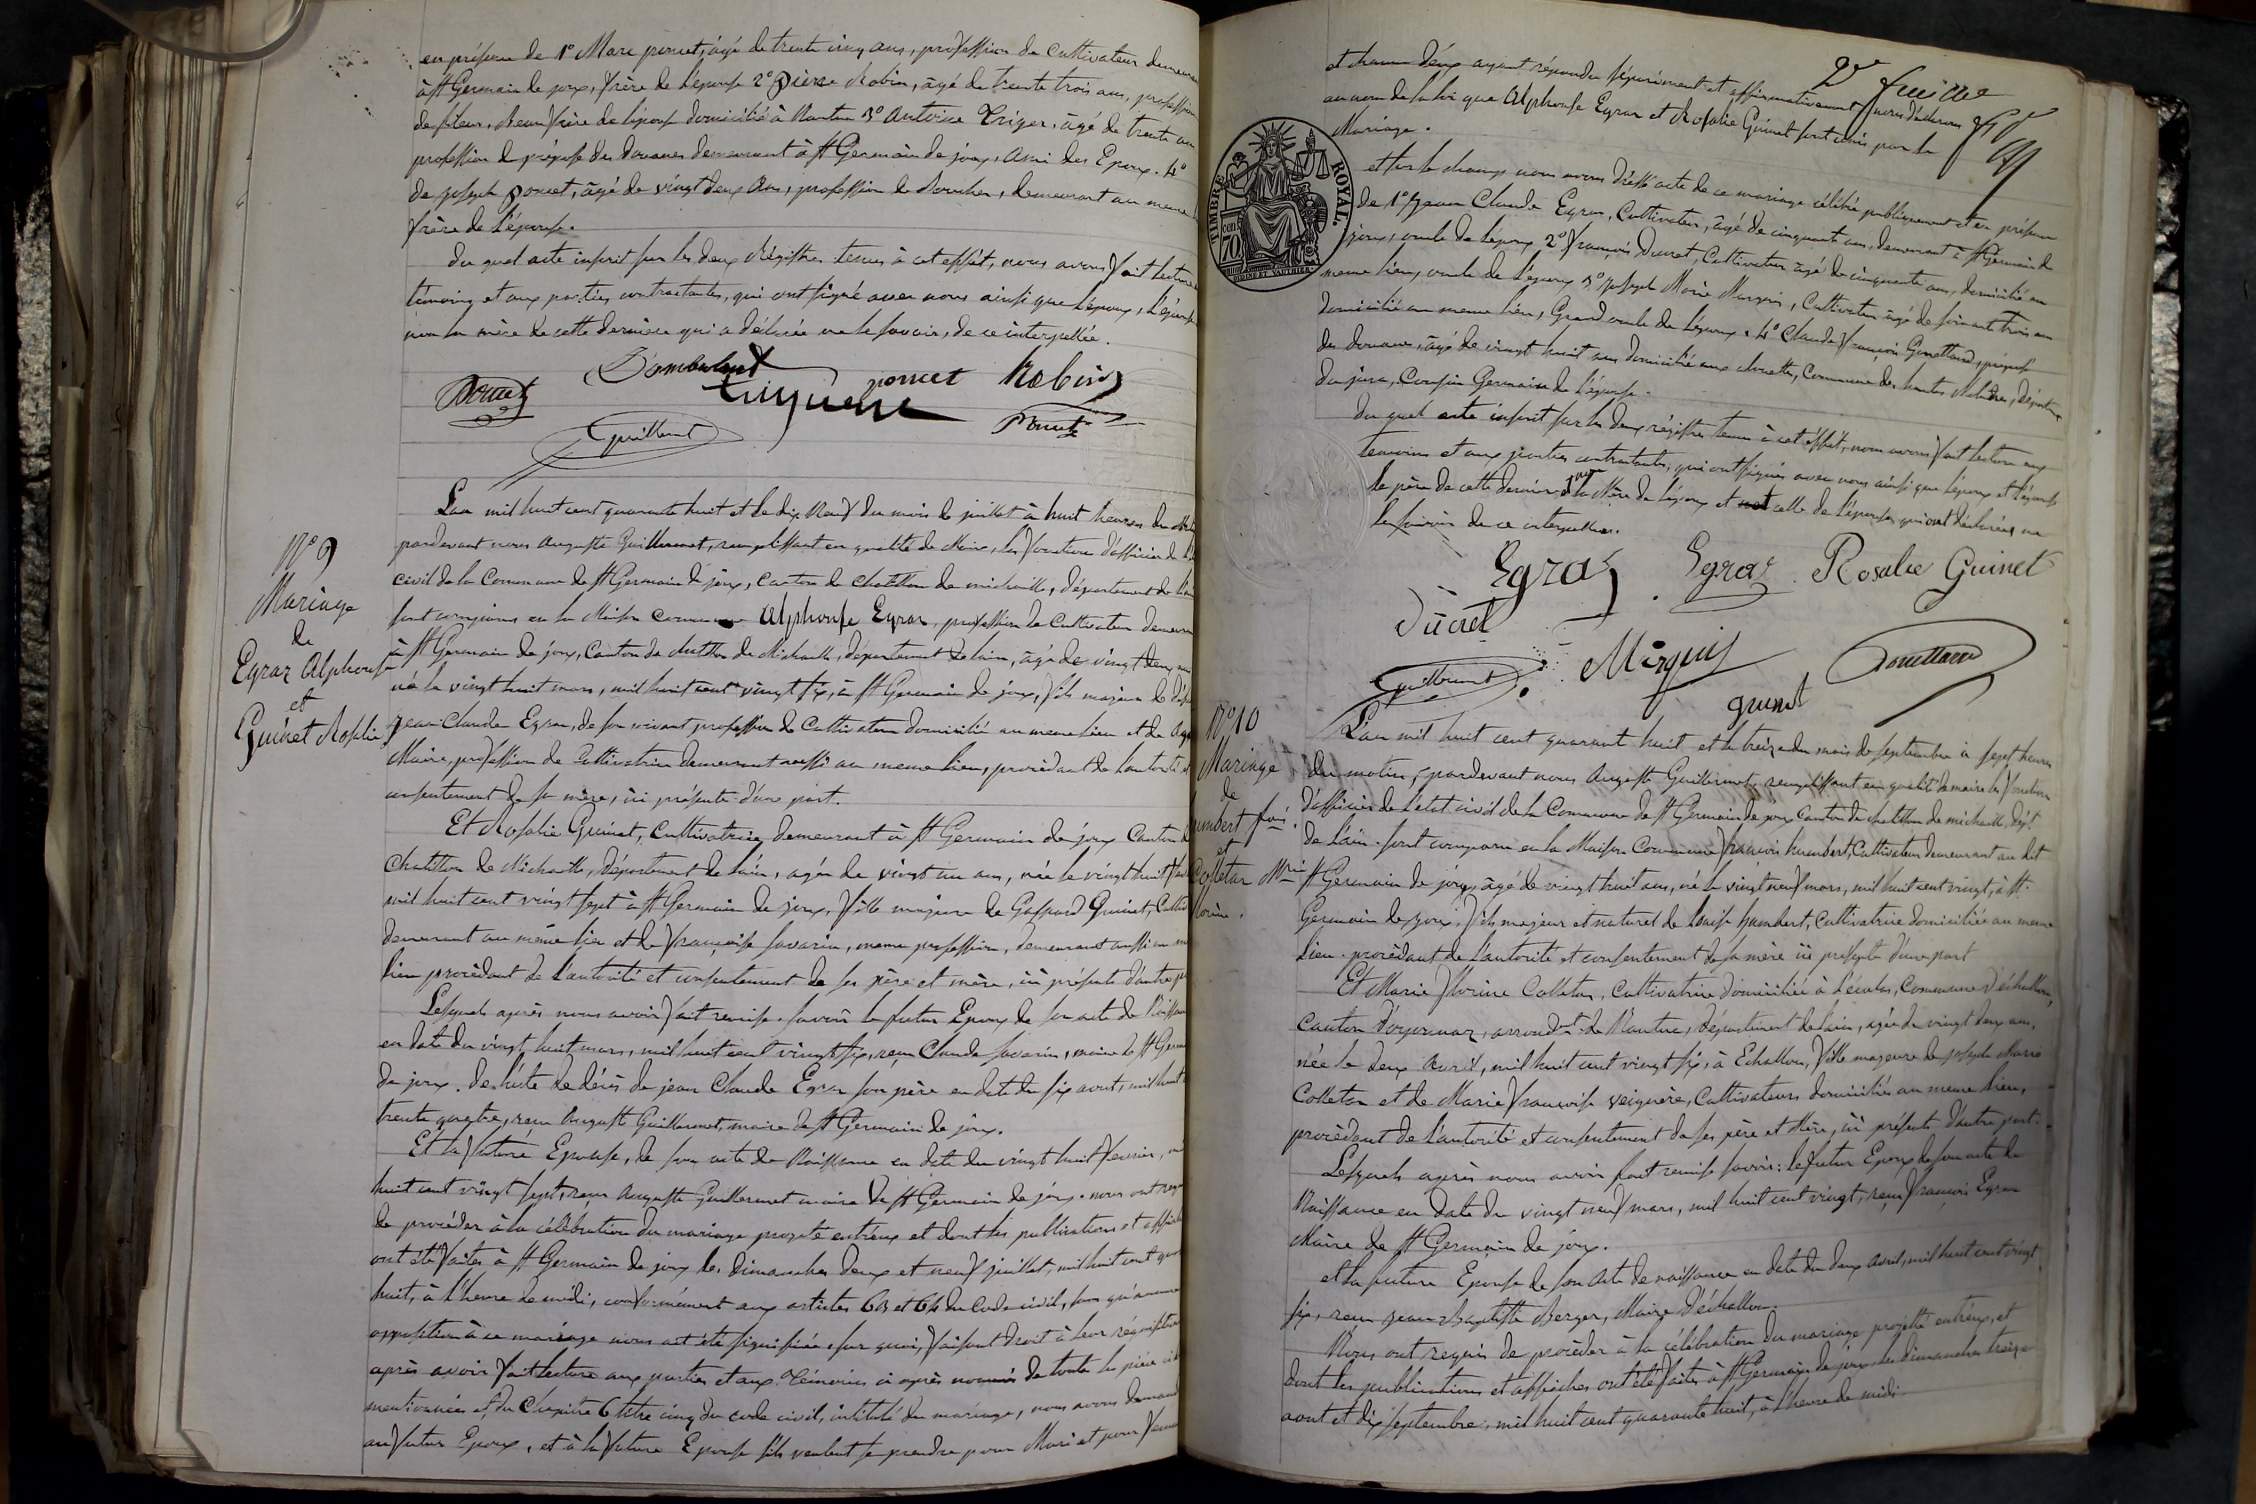 en présence de 1° Marc poncet, âgé de trente cinq ans, profession de Cultivateur demeurant
à St Germain de joux, frère de l'épouse 2° pierre Robin, âgé de trente trois ans, profession
de fileur, Beau frère de l'épouse domicilié à Nantua 3° Antoine Triger, âgé de trente ans
profession de préposé des Douanes demeurant à St Germain de joux, ami des Epoux. 4°
de joseph poncet, âgé de vingt deux ans, profession de, demeurant au meme
frère de l'épouse.
Du quel acte inscrit sur les deux Régistres tenus à cet effêt, nous avons fait lecture
témoins et aux parties contractantes, qui ont signé avec nous ainsi que l'époux, l'épouse
non la mère de cette dernière qui a déclarée ne le savoir, de ce interpellée.
poncet Robin
Poncet
Guillermet
N° 9
Mariage
de
Egraz Alphonse
et
Guinet Rosalie
L'an mil huit cent quarante huit et le dix Neuf du mois de juillet à huit heures du
pardevant nous Auguste Guillermet, remplissant en qualité de Maire, les fonctions d'officier de l'état
civil de la Commune de St Germain de joux, Canton de chatillon de michaille, département de l'ain
sont comparus en la Maison commune Alphonse Egraz, profession de Cultivateur demeurant
à St Germain de joux, Canton de chatillon de Michaille, département de l'ain, âgé de vingt deux ans
né le vingt huit mars, mil huit cent vingt six, à St Germain de joux, fils majeur de
jean Claude Egraz, de son vivant profession de Cultivateur domicilié au meme lieu et de
Maire, profession de Cultivatrice demeurant aussi au meme lieu, procèdant de l'autorité et
consentement de sa mère, ici présente d'une part.
Et Rosalie Guinet, Cultivatrice demeurant à St Germain de joux Canton de
Chatillon de Michaille, département de l'ain, agée de vingt un ans, née le vingt huit
mil huit cent vingt sept à St Germain de joux, fille majeure de Gaspard Guinet,
demeurant au même lieu et de françoise Savarin, meme profession, demeurant aussi au
lieu procèdant de l'autorité et consentement de ses père et mère, ici présents d'autre part
Lesquels après nous avoir fait remise savoir le futur Epoux de son acte de Naissance
en date du vingt huit mars, mil huit cent vingt six, reçu Claude Savarin, maire de St Germain
de joux. De l'acte de décès de jean Claude Egraz son père en date du six aout, mil huit
trente quatre, reçu Auguste Guillermet, maire de St Germain de joux.
Et la future Epouse, de son acte de Naissance en date du vingt huit fevrier,
huit cent vingt sept, reçu Auguste Guillermet maire de St Germain de joux. nous ont requis
de procéder à la célébration du mariage projeté entreux et dont les publications et affiches
ont été faites à St Germain de joux les dimanches deux et neuf juillet, mil huit cent quarante
huit, à l'heure de midi, conformément aux articles 63 et 64 du Code civil, sans qu'aucune
opposition à ce mariage nous ait été signifiée, sur quoi, faisant droit à leur réquisition
après avoir fait lecture aux parties et aux Témoins ci après nommés de toutes les pièces ci
mentionnées et du Chapitre 6 titre cinq du code civil, intitulé du mariage, nous avons demandé
au futur Epoux, et à la future Epouse s'ils veulent se prendre pour Mari et pour femme
2e feuille
et chacun d'eux ayant répondu séparément et affirmativement nous déclarons
au nom de la loi que Alphonse Egraz et Rosalie Guinet sont unis par le
Mariage.
TIMBRE ROYAL.
cen. 70
et sur le champ nous avons dressé acte de ce mariage célébré publiquement et en présence
de 1° jean Claude Egraz, Cultivateur, âgé de cinquante ans, demeurant à St Germain de
joux, oncle de l'époux 2° françois Ducret, Cultivateur âgé de cinquante ans, domicilié au
meme lieu, oncle de l'époux 3° joseph Marie Marquis, Cultivateur âgé de soixante trois ans
domicilié au meme lieu, Grand oncle de l'époux. 4° Claude françois Gonettard, préposé
des Douanes, âgé de vingt huit ans domicilié aux, Commune des hautes Molunes, département
du jura, Cousin Germain de l'épouse.
Du quel acte inscrit sur les deux régistres tenus à cet effêt, nous avons fait lecture aux
temoins et aux parties contractantes, qui ont signés avec nous ainsi que l'époux et l'épouse
le père de cette dernière, la Mère de l'époux et celle de l'épouse, qui ont déclarées ne
le savoir de ce interpellées.
Egraz Egraz Rosalie Guinet
Ducret
Guillermet Marquis Gonettard
guinet
N° 10
Mariage
de
humbert fois.
et
Colletaz Mrie
florine.
L'an mil huit cent quarante huit et le treize du mois de septembre à sept heures
du matin, pardevant nous Auguste Guillermet, remplissant en qualité de maire les fonctions
d'officier de l'état civil de la Commune de St Germain de joux Canton de chatillon de michaille, dépt
de l'ain. sont comparu en la Maison Commune françois humbert, Cultivateur demeurant au dit
St Germain de joux, âgé de vingt huit ans, né le vingt neuf mars, mil huit cent vingt, à St
Germain de joux. fils majeur et naturel de Louise humbert, Cultivatrice domiciliée au meme
Lieu. procèdant de l'autorité et consentement de sa mère ici présente d'une part
Et Marie florine Colletaz, Cultivatrice domiciliée à, Commune d'échallon,
Canton d'oyonnaz, arrondt de Nantua, département de l'ain, agée de vingt deux ans,
née le deux Avril, mil huit cent vingt six, à Echallon, fille majeure de joseph Marie
Colletaz et de Marie françoise, Cultivateurs domiciliés au meme lieu,
procèdant de l'autorité et consentement de ses père et Mère, ici présents d'autre part.
Lesquels après nous avoir fait remise savoir: le futur Epoux de son acte de
Naissance en date du vingt neuf mars, mil huit cent vingt, reçu françois Egraz
Maire de St Germain de joux.
et la future Epouse de son acte de naissance en date du deux avril, mil huit cent vingt
six, reçu jean Baptiste Berger, Maire d'échallon.
Nous ont requis de procéder à la célébration du mariage projetté entreux, et
dont les publications et affiches ont été faites à St Germain de joux les dimanches treize
aout et dix septembre, mil huit cent quarante huit, à l'heure de midi